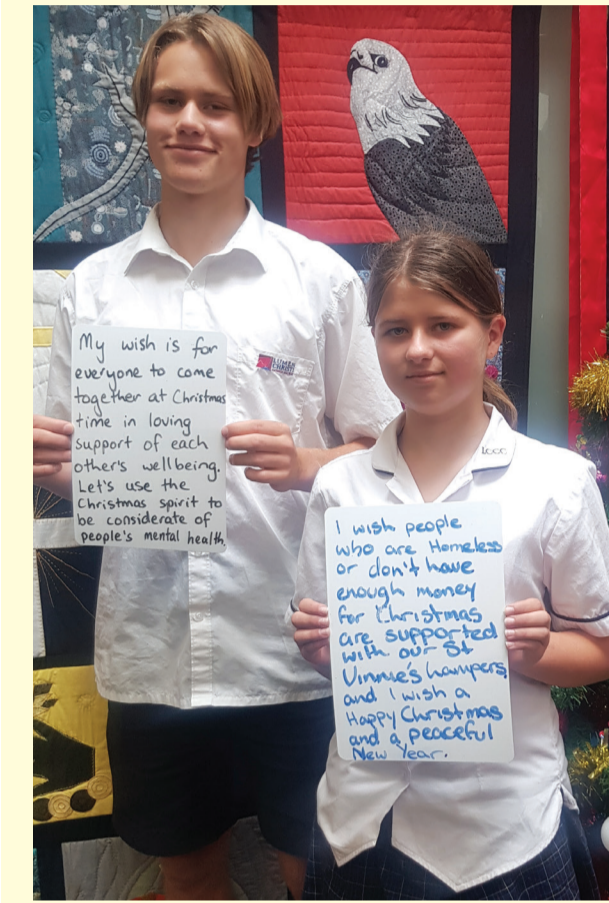 My wish is for
everyone to come
together at Christmas
time in loving
support of each
other's wellbeing.
Let's use the
Christmas spirit to
be considerate of
people's mental health
LCCC
I wish people
who are Homeless
or don't have
enough money
for Christmas
are supported
with our St
Vinnie's hampers
and I wish a
Happy Christmas
and a peaceful
New Year.